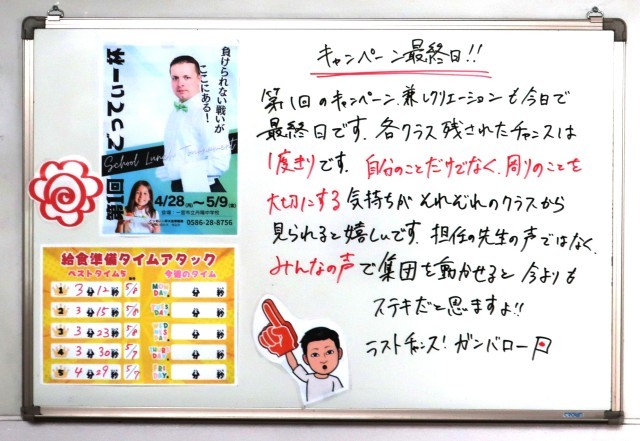 キャンペーン最終日!!
第1回のキャンペーン兼レクリエーションも今日で
最終日です。各クラス残されたチャンスは
1度きりです。自分のことだけでなく、周りのことを
大切にする気持ちがそれぞれのクラスから
見られると嬉しいです。担任の先生の声ではなく、
みんなの声で集団を動かせると今よりも
ステキだと思いますよ!!
ラストチャンス!ガンバロー
負けられない戦いが
ここにある!
School Lunch Tournament
4/28(月)～5/9(金)
会場:一宮市立丹陽中学校
0586-28-8756
給食準備タイムアタック
ベストタイム5
今週のタイム
1 3分12秒 5/8
MONDAY 分 秒
2 3分15秒 5/8
TUESDAY 分 秒
3 3分23秒 5/8
WEDNESDAY 分 秒
4 3分30秒 5/7
THURSDAY 分 秒
5 4分29秒 5/7
FRIDAY 分 秒